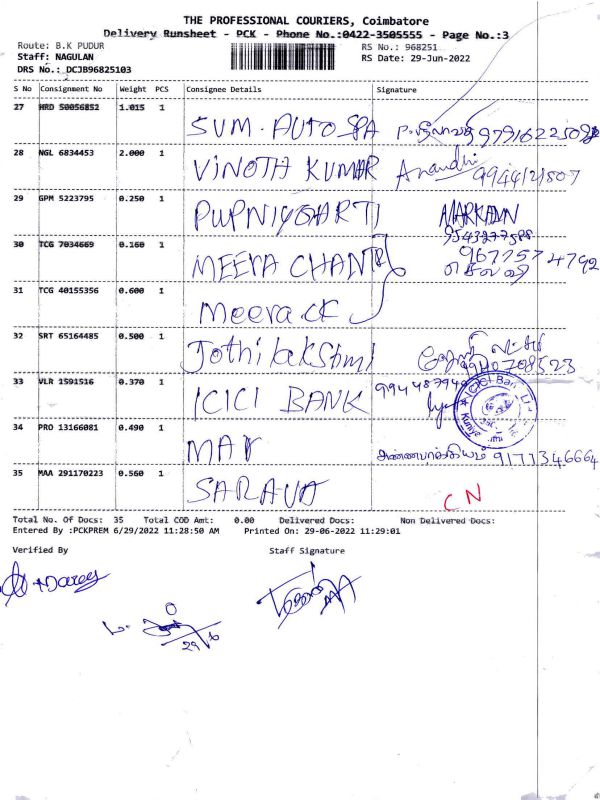 THE PROFESSIONAL COURIERS, Coimbatore
Delivery Runsheet - PCK - Phone No.:0422-3505555 - Page No.:3
Route: B.K PUDUR RS No.: 968251
Staff: NAGULAN RS Date: 29-Jun-2022
DRS No.: DCJB96825103
S No Consignment No Weight PCS Consignee Details Signature
27 HRD 50056852 1.015 1 SUM. AUTO SPA
28 NGL 6834453 2.000 1 VINOTH KUMAR Anandhi 9944121507
29 GPM 5223795 0.250 1 MARKADN
9543277588
30 TCG 7034669 0.160 1 MEERA CHAN 9677574792
செல்வி
31 TCG 40155356 0.600 1 Meera ck
32 SRT 65164485 0.500 1 Jothilakshmi 9940708523
33 VLR 1591516 0.370 1 ICICI BANK
34 PRO 13166081 0.490 1 அன்னபாக்கியம் 9171346664
35 MAA 291170223 0.560 1 SARAVA CN
Total No. Of Docs: 35 Total COD Amt: 0.00 Delivered Docs: Non Delivered Docs:
Entered By :PCKPREM 6/29/2022 11:28:50 AM Printed On: 29-06-2022 11:29:01
Verified By Staff Signature
29/6